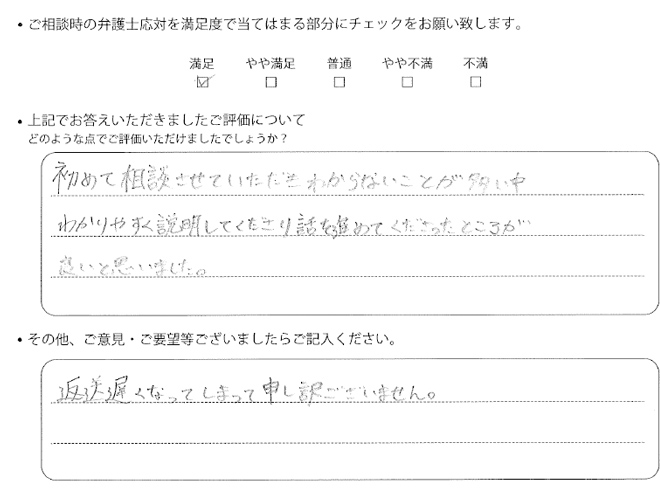 ・ご相談時の弁護士応対を満足度で当てはまる部分にチェックをお願い致します。
満足 やや満足 普通 やや不満 不満
☑ □ □ □ □
・上記でお答えいただきましたご評価について
どのような点でご評価いただけましたでしょうか？
初めて相談させていただきわからないことが多い中
わかりやすく説明してくださり話を進めてくださったところが
良いと思いました。
・その他、ご意見・ご要望等ございましたらご記入ください。
返送遅くなってしまって申し訳ございません。